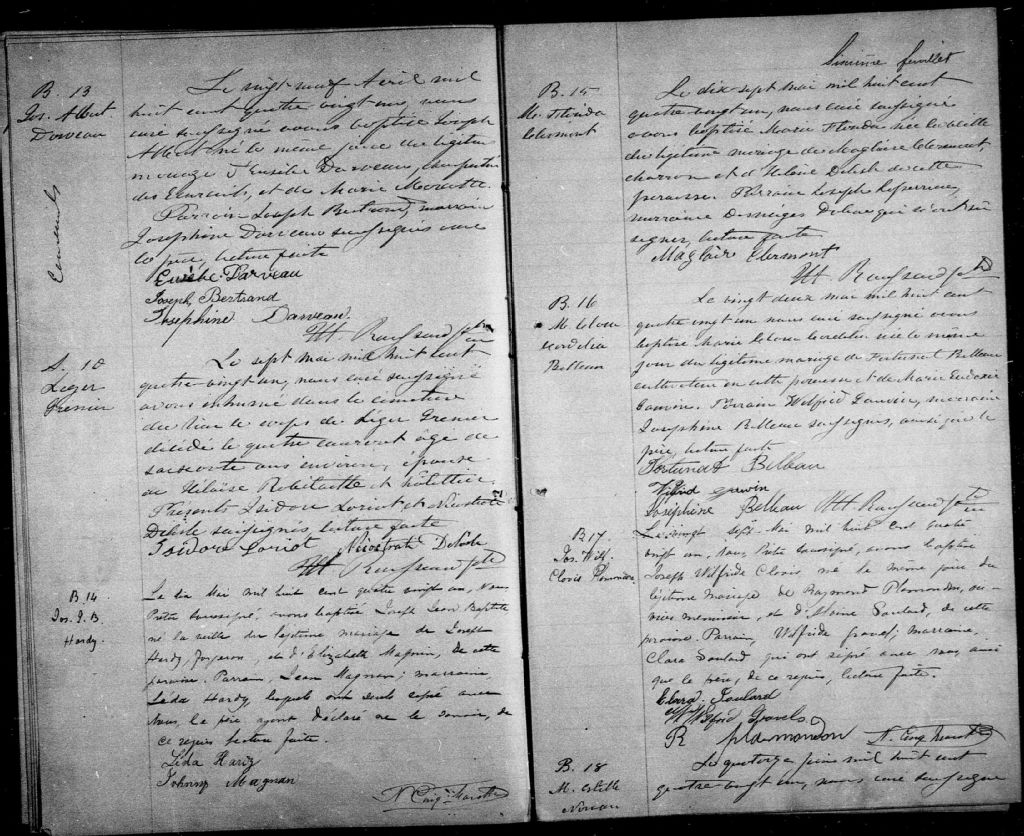 B. 13
Jos. Albert
Darveau
Le vingt neuf Avril mil
huit cent quatre vingt un, nous
curé soussigné avons baptisé Joseph
Albert né le même jour du légitime
mariage d'Eusèbe Darveau,
des Ecureuils, et de Marie
Parrain Joseph Bertrand, marraine
Josephine Darveau soussignés avec
le père, lecture faite
Eusèbe Darveau
Joseph Bertrand
Josephine Darveau
S. 10
Léger
Grenier
Le sept mai mil huit cent
quatre vingt un, nous curé soussigné
avons inhumé dans le cimetière
du lieu le corps de Léger Grenier
décédé le quatre courant âgé de
soixante ans environ, époux
de Héloïse Robitaille et hôtellier
Présents Isidore Loriot et
Delisle soussignés, lecture faite
Isidore Loriot Delisle
B 14
Jos. J. B.
Hardy
Le dix Mai mil huit cent quatre vingt un, Nous
Prêtre soussigné, avons baptisé Joseph Jean Baptiste
né la veille du légitime mariage de Joseph
Hardy, forgeron, et d'Elizabeth Magnan, de cette
paroisse. Parrain, Jean Magnan; marraine,
Léda Hardy, lesquels ont seuls signé avec
Nous, le père ayant déclaré ne le savoir, de
ce requis lecture faite.
Léda Hardy
Johnny Magnan
Sixième feuillet
B. 15
M. Florida
Clermont
Le dix sept mai mil huit cent
quatre vingt un, nous curé soussigné
avons baptisé Marie Florida née la veille
du légitime mariage de Magloire Clermont,
charron et d'Hélène Delisle de cette
paroisse. Parrain Joseph Laperrière,
marraine Desneiges qui n'ont su
signer, lecture faite
Magloire Clermont
B. 16
M. Clara
Cordelia
Belleau
Le vingt deux mai mil huit cent
quatre vingt un nous curé soussigné avons
baptisé Marie Clara Cordelia née le même
jour du légitime mariage de Fortunat Belleau
cultivateur en cette paroisse et de Marie
Gauvin. Parrain Wilfrid Gauvin, marraine
Josephine Belleau soussignés, ainsi que le
père, lecture faite
Fortunat Belleau
Wilfrid gauvin
Joséphine Belleau
B 17
Jos. Wilf.
Clovis Plamondon
Le vingt sept Mai mil huit cent quatre
vingt un, Nous Prêtre soussigné, avons baptisé
Joseph Wilfride Clovis né le même jour du
légitime mariage de Raymond Plamondon,
menuisier, et d'Soulard, de cette
paroisse. Parrain, Wilfride gravel; marraine,
Clara Soulard qui ont signé avec nous, ainsi
que le père, de ce requis, lecture faite.
Clara Soulard
Wilfrid Gravel
R plamondon
B. 18
M. Estelle
Le quatorze juin mil huit cent
quatre vingt un, nous curé soussigné